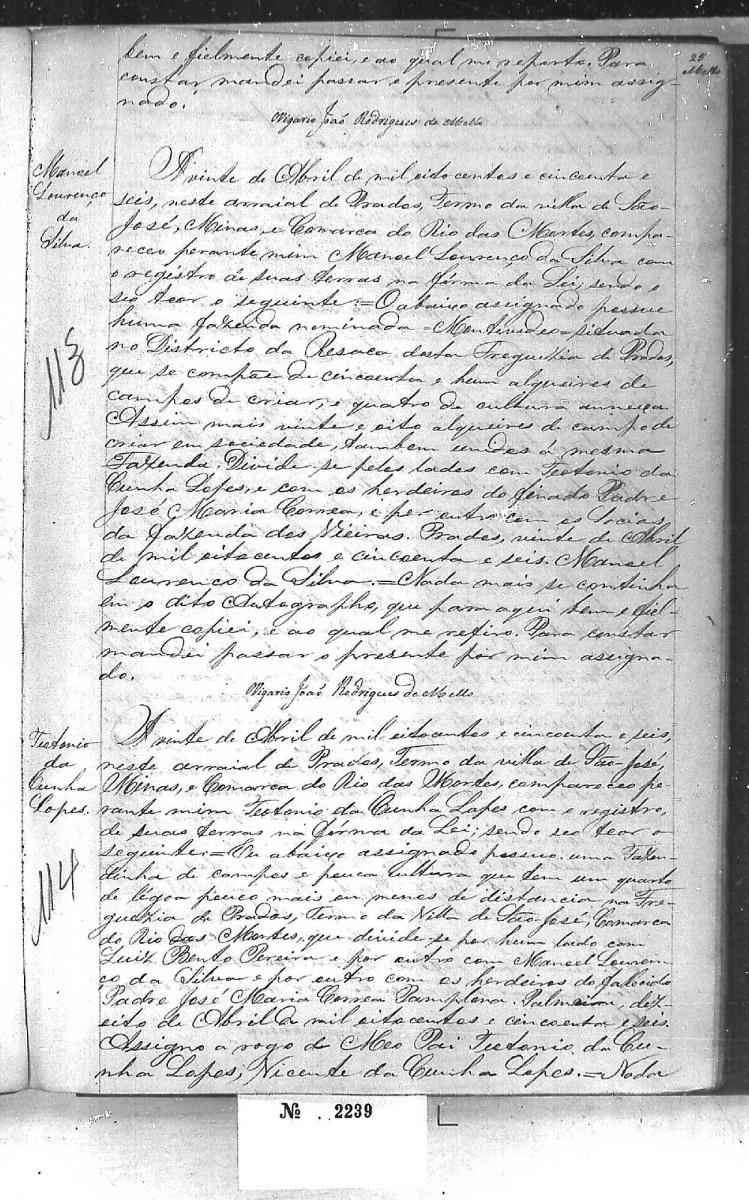 25
Mello
bem e fielmente copiei, e ao qual me reporto. Para
constar mandei passar o presente por mim assig-
nado.
Vigario João Rodrigues de Mello
Manoel
Lourenço
da
Silva.
113
A vinte de Abril de mil eitocentos e cincoenta e
seis, neste arraial de Prados, Termo da villa de São-
José, Minas, e Comarca do Rio das Mortes, compa-
receo perante mim Manoel Lourenço da Silva com
o registro de suas terras na fórma da Lei; sendo o
seo teor o seguinte:=O abaixo assignado possue
huma fazenda nominada-Montividéo=situada
no Districto da Resaca desta Freguezia de Prados,
que se compõe de cincoenta e hum alqueires de
campos de criar, e quatro de cultura annexa
Assim mais vinte e oito alqueires de campo de
criar em sociedade, tambem unidos á mesma
Fazenda. Divide-se pelos lados com Teotonio da
Cunha Lopes, e com os herdeiros do finado Padre
José Maria Correa, e por outro com os socios
da fazenda dos Vieiras. Prados, vinte de Abril
de mil oitocentos e cincoenta e seis. Manoel
Lourenco da Silva.=Nada mais se continha
em o dito Autographo, que para aqui bem e fiel-
mente copiei, e ao qual me refiro. Para constar
mandei passar o presente por mim assigna-
do.
Vigario João Rodrigues de Mello
Teotonio
da
Cunha
Lopes.
114
A vinte de Abril de mil oitocentos e cincoenta e seis,
neste arraial de Prados, Termo da villa de São-José,
Minas, e Comarca do Rio das Mortes, compareceo pe-
rante mim Teotonio da Cunha Lopes com o registro,
de suas terras na fórma da Lei; sendo seo teor o
seguinte:=Eu abaixo assignado possuo uma Fazen-
dinha de campos e pouca cultura que tem um quarto
de legoa pouco mais ou menos de distancia na Fre-
guezia de Prados, Termo da Villa de São-José, Comarca
do Rio das Mortes, que divide-se por hum lado com
Luiz Bento Pereira e por outro com Manoel Louren-
ço da Silva e por outro com os herdeiros do falecido
Padre José Maria Correa Pamplona. Palmeira, dez-
eito de Abril de mil oitocentos e cincoenta e seis.
Assigno a rogo de Meo Pai Teotonio da Cu-
nha Lopes; Vicente da Cunha Lopes.=Nada
№ . 2239